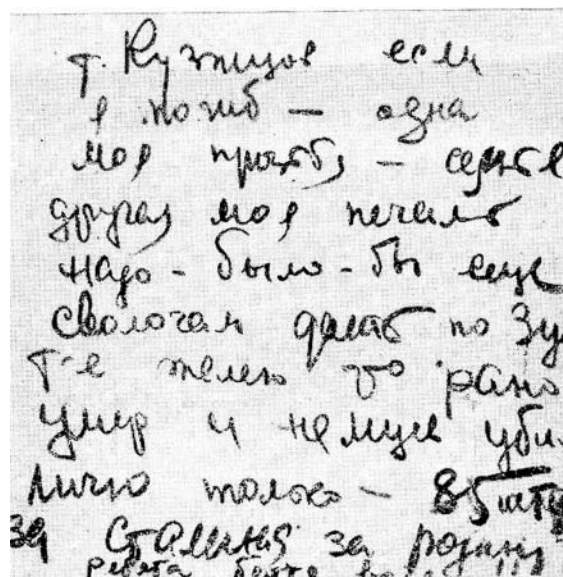 т. Кузнецов если
я погиб — одна
моя просьба — семья
другая моя печаль
надо-было-бы еще
сволочам дать по зу
т-е жалею что рано
умер и немцев уби
лично только — 85 шту
за Сталина за родину
ребята бейте